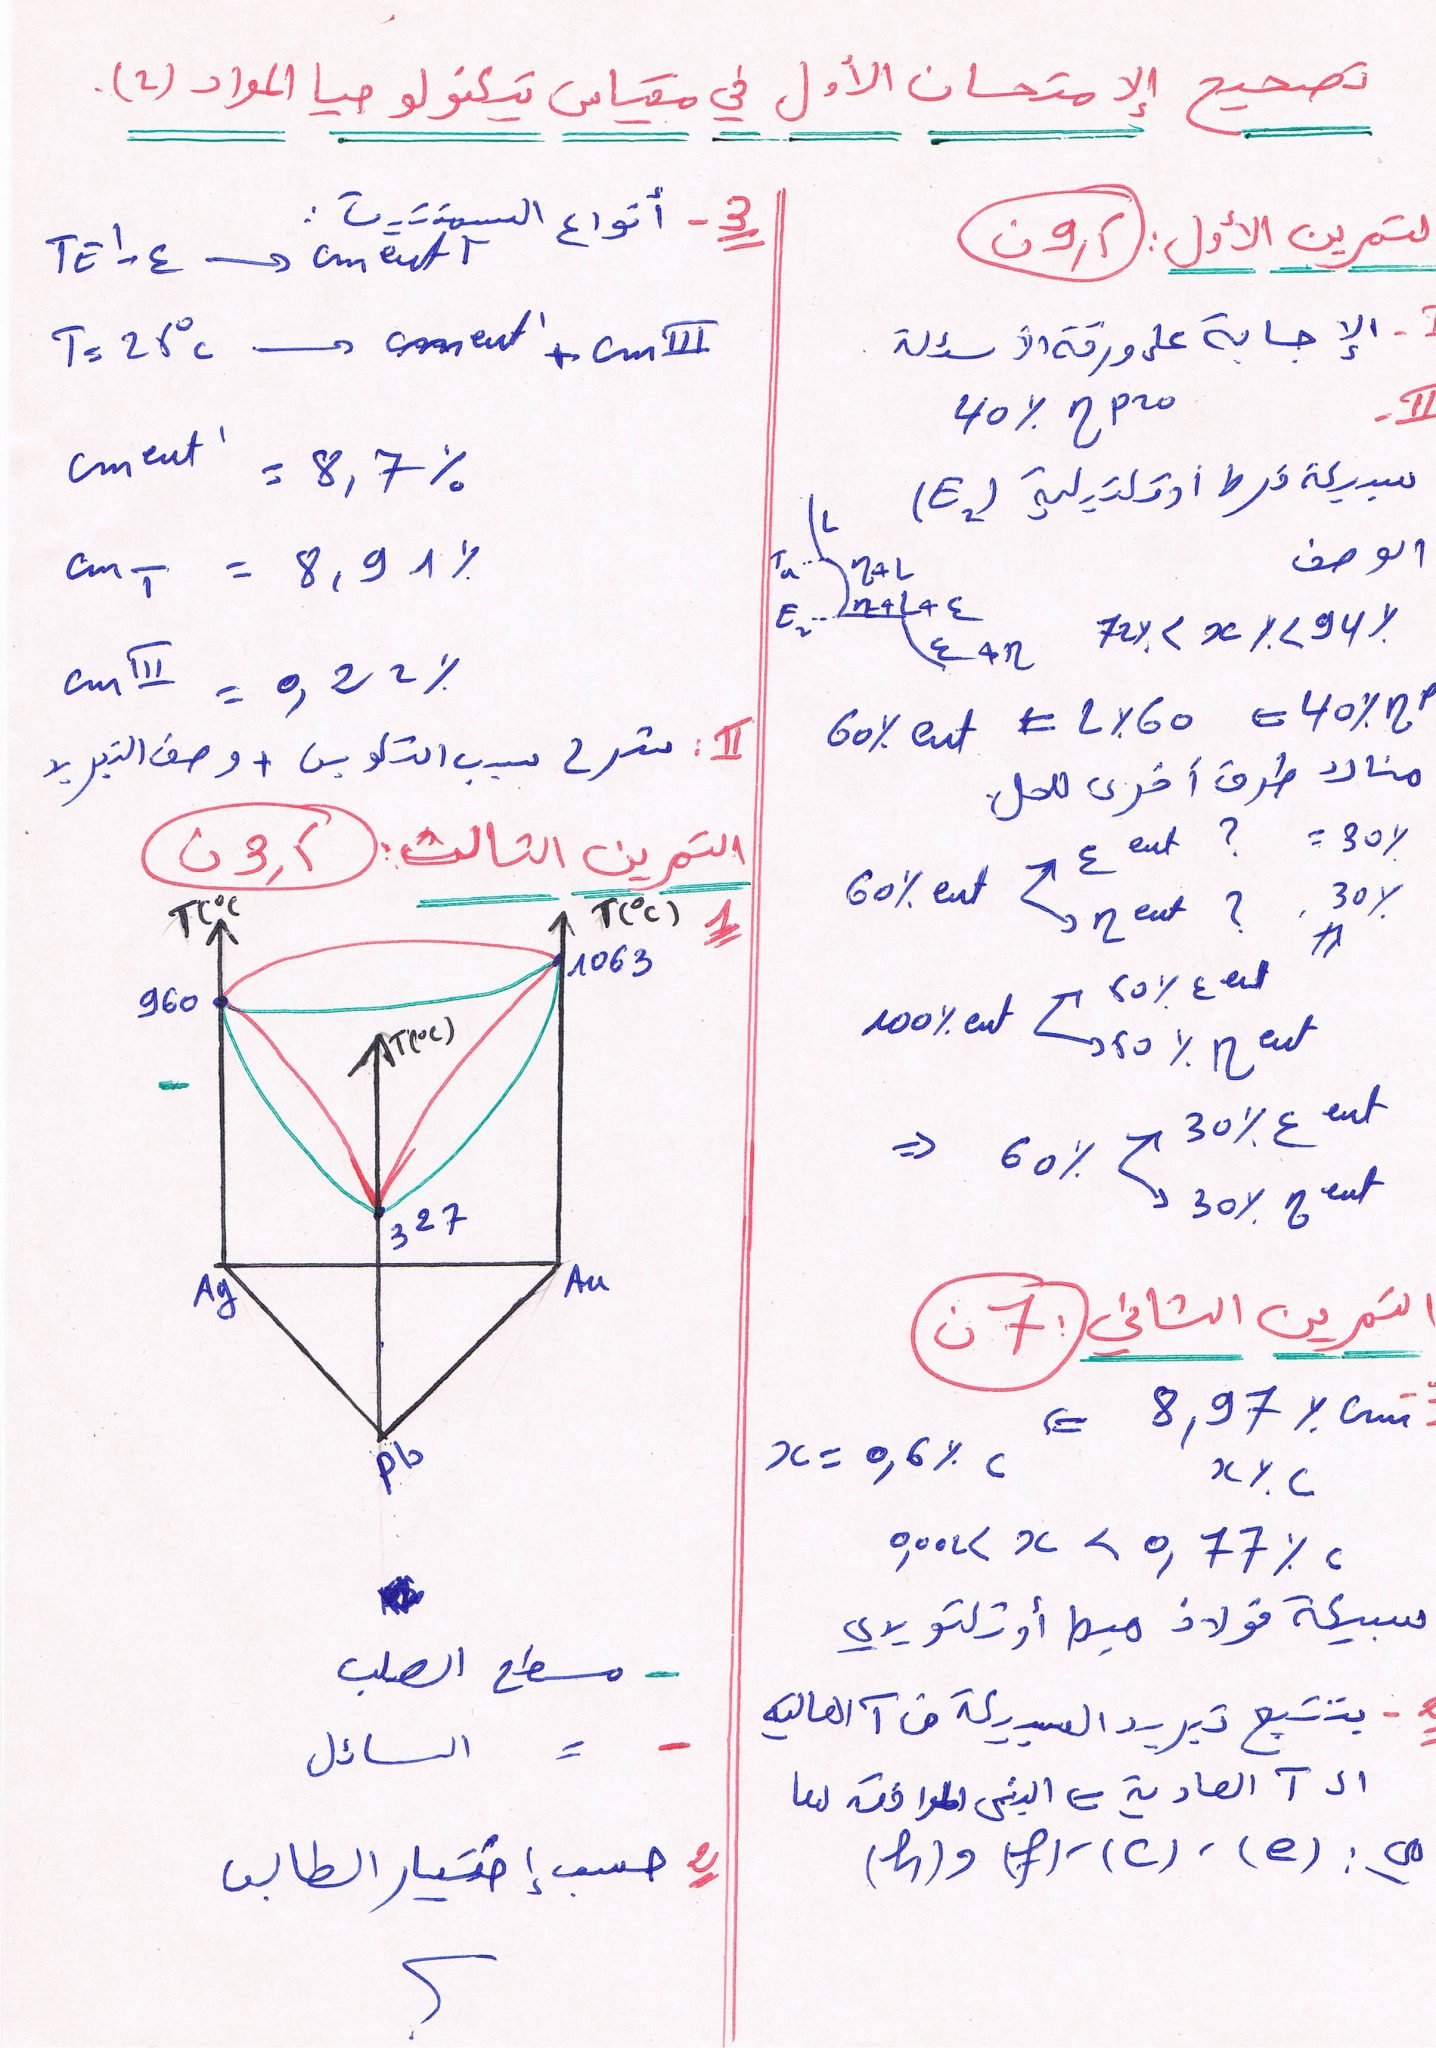 تصحيح الإمتحان الأول في مقياس تكنولوجيا المواد (2).
التمرين الأول: 9,5 ن
I - الإجابة على ورقة الأسئلة
II - 40% η pro
سبيكة فرط أوتكتيكية (E2)
الوصف
L
Ta η+L
E2 η+L+ε
ε+η
72% < x% < 94%
60% eut ⇐ L%60 ⇐ 40% η p
هناك طرق أخرى للحل.
60% eut
ε eut ? = 30%
η eut ? 30%
100% eut
50% ε eut
50% η eut
⇒ 60%
30% ε eut
30% η eut
التمرين الثاني: 7 ن
8,97 % Cm ⇐
x % C
x = 0,6 % C
0,002 < x < 0,77 % C
سبيكة فولاذ هيبو أوتكتويدي
2 - بتتبع تبريد السبيكة من T العالية
الى T العادية ⇐ البنى الموافقة لها
هي: (e) - (c) - (f) و (h)
3 - أنواع السمنتيت:
T = 1-ε → Cment I
T = 25°C → Cment' + Cm III
Cm eut' = 8,7 %
Cm I = 8,91 %
Cm III = 0,22 %
II: شرح سبب + وصف التبريد
التمرين الثالث: 3,5 ن
1
T(°C
T(°C)
1063
960
T(°C)
327
Ag
Au
Pb
- سطح الصلب
- = السائل
2 حسب إختيار الطالب